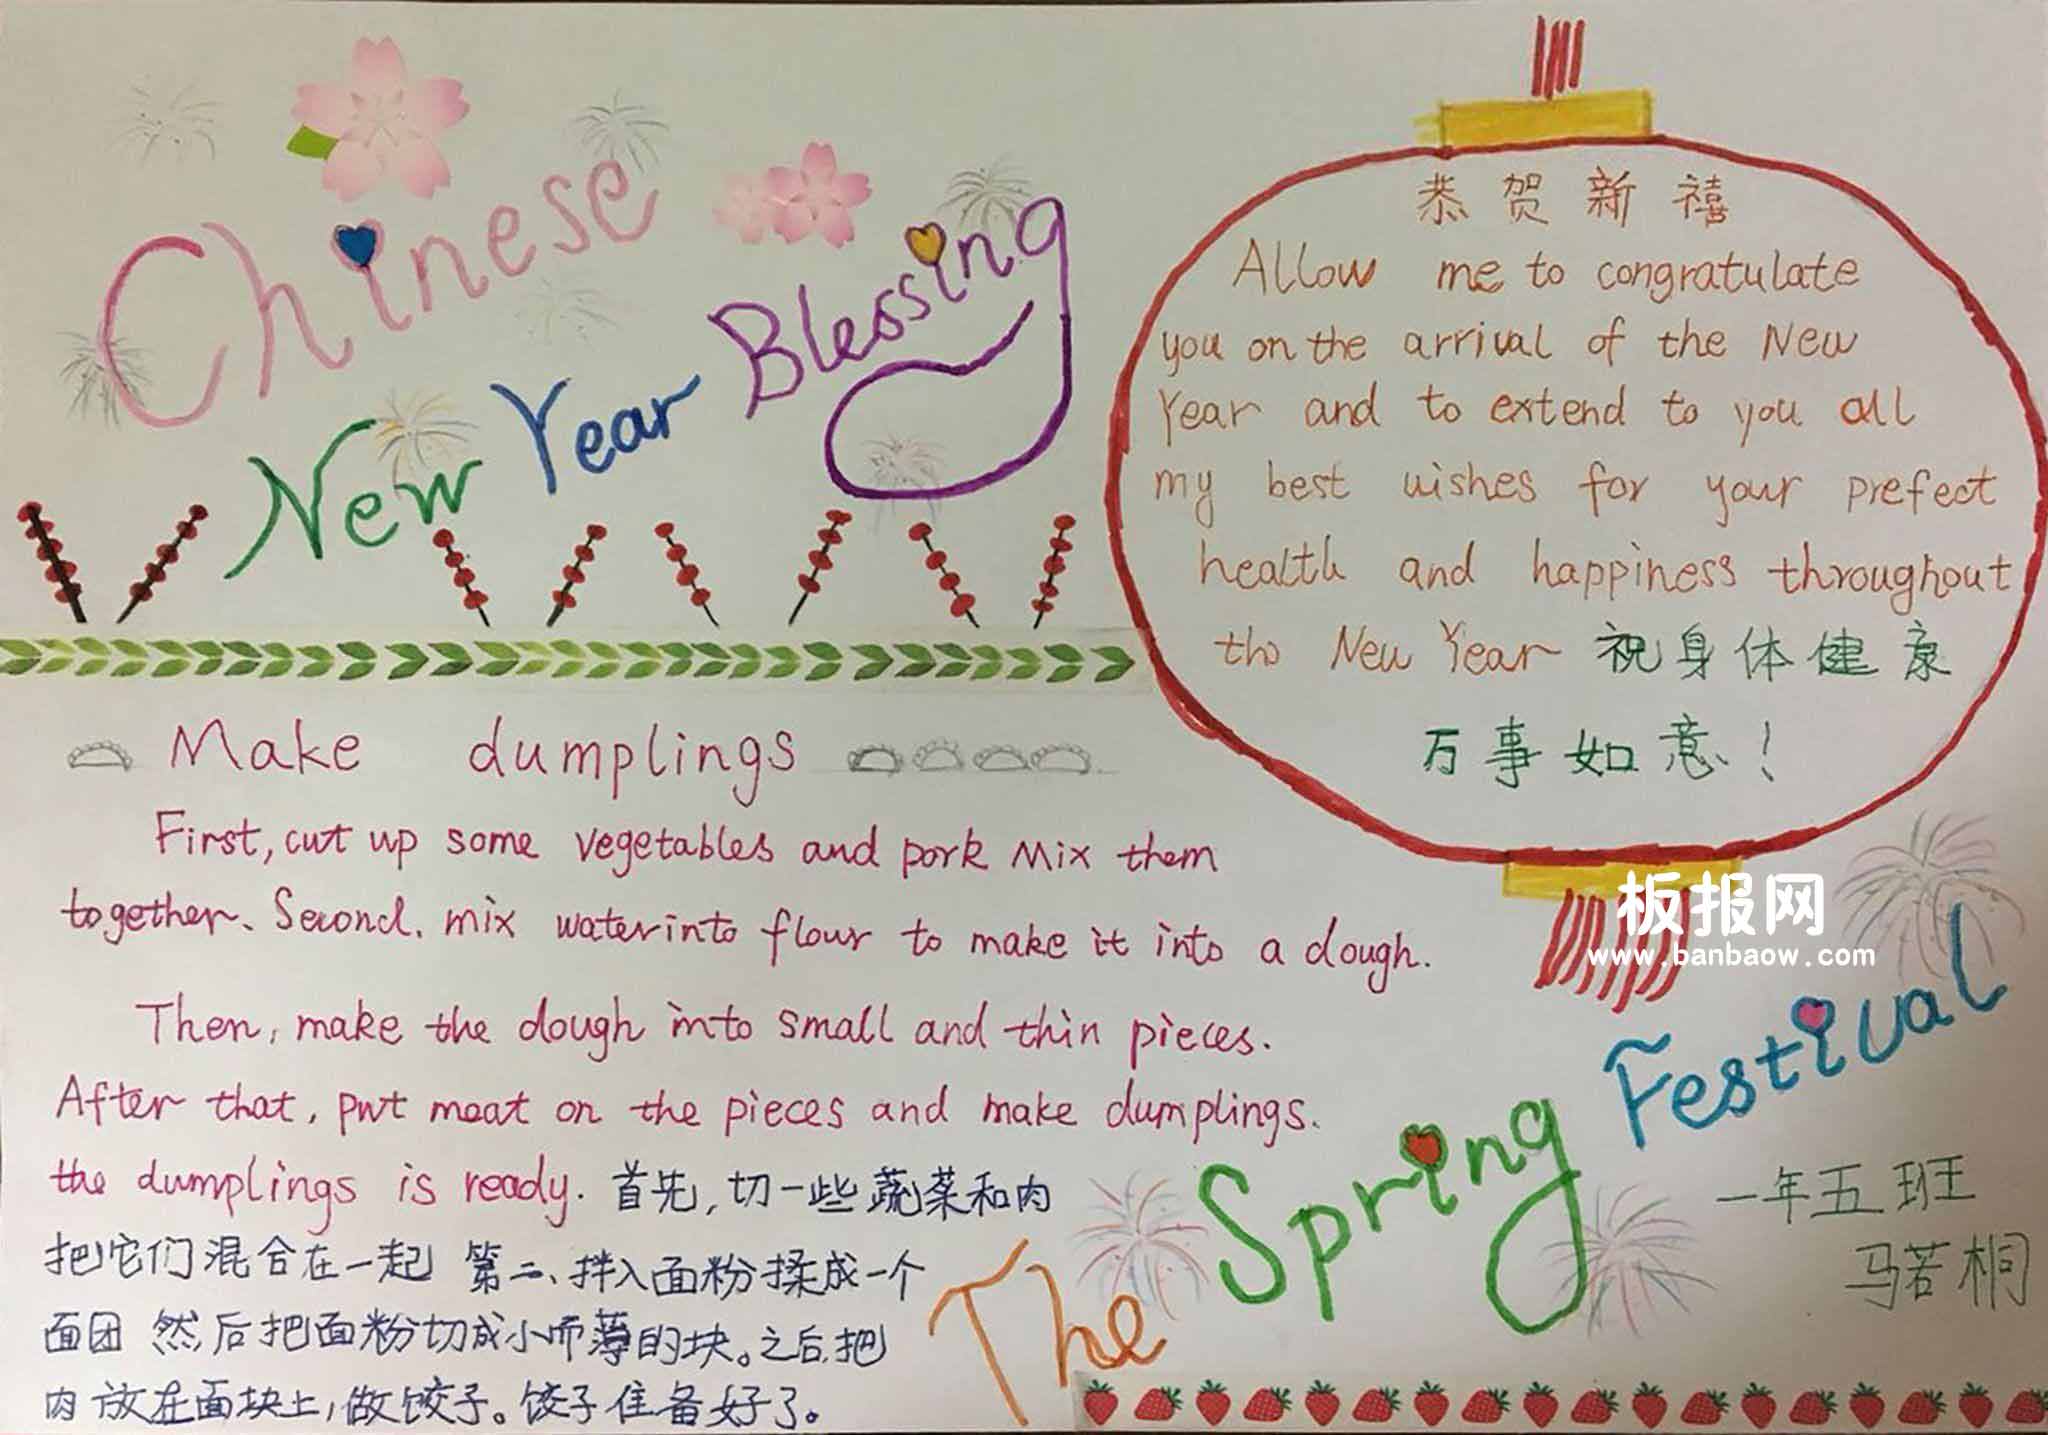 Chinese
New Year Blessing
恭贺新禧
Allow me to congratulate
you on the arrival of the New
Year and to extend to you all
my best wishes for your prefect
health and happiness throughout
the New Year 祝身体健康
万事如意！
Make dumplings
First, cut up some vegetables and pork Mix them
together. Second. mix water into flour to make it into a dough.
Then, make the dough into small and thin pieces.
After that, put meat on the pieces and make dumplings.
the dumplings is ready. 首先，切一些蔬菜和肉
把它们混合在一起 第二、拌入面粉揉成一个
面团 然后把面粉切成小而薄的块。之后，把
肉放在面块上，做饺子。饺子准备好了。
板报网
www.banbaow.com
The Spring Festival
一年五班
马若桐